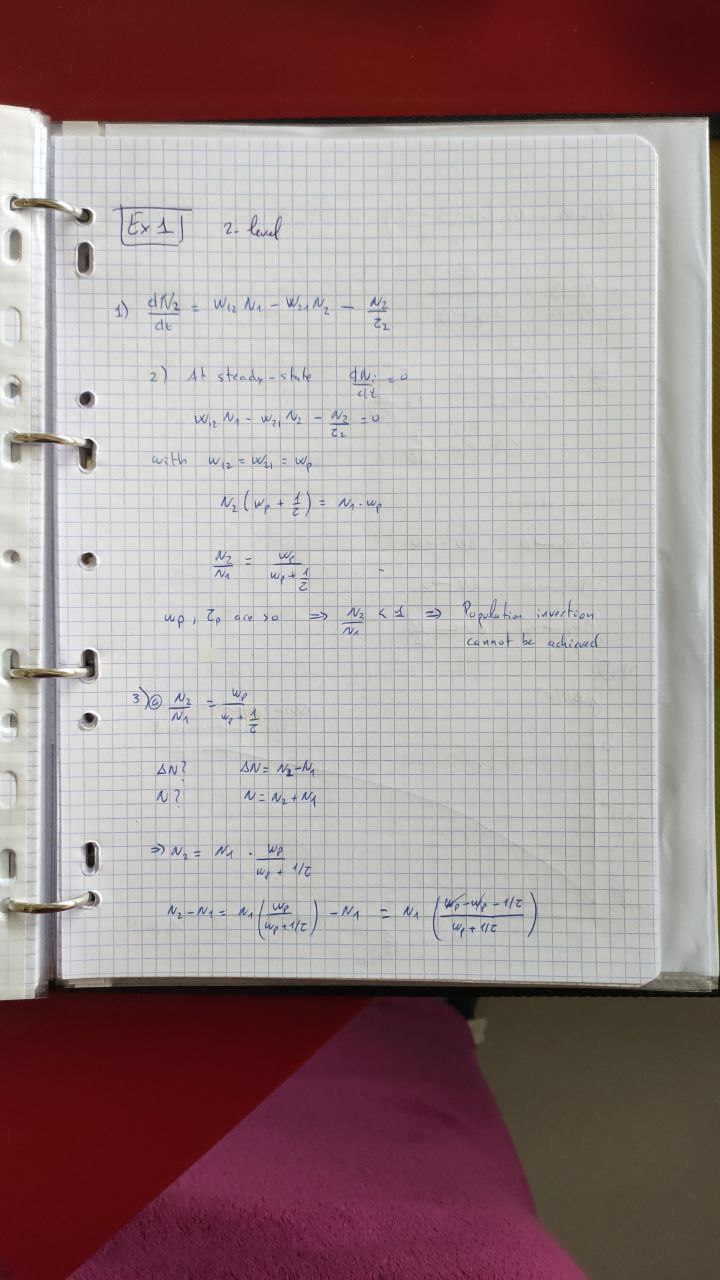 Ex 1 2-level
1) dN₂/dt = W₁₂ N₁ - W₂₁ N₂ - N₂/τ₂
2) At steady-state dNᵢ/dt = 0
W₁₂ N₁ - W₂₁ N₂ - N₂/τ₂ = 0
with W₁₂ = W₂₁ = Wp
N₂ (Wp + 1/τ) = N₁ · Wp
N₂/N₁ = Wp/(Wp + 1/τ)
Wp, τp are >0 ⇒ N₂/N₁ < 1 ⇒ Population invertion
cannot be achieved
3) ⓐ N₂/N₁ = Wp/(Wp + 1/τ)
ΔN? ΔN = N₂-N₁
N? N = N₂+N₁
⇒ N₂ = N₁ · Wp/(Wp + 1/τ)
N₂-N₁ = N₁ (Wp/(Wp+1/τ)) - N₁ = N₁ ((Wp-Wp-1/τ)/(Wp+1/τ))